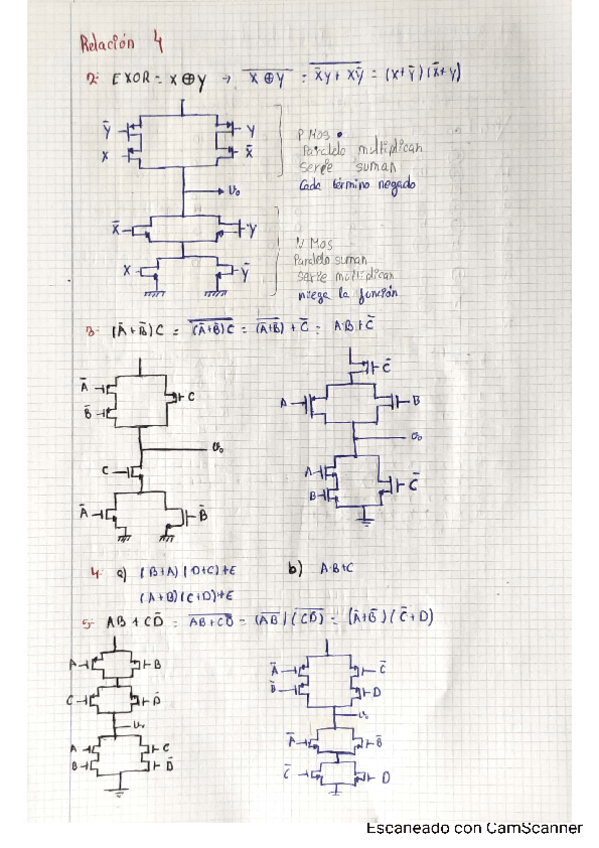 Relación 4
2- EXOR = X ⊕ y → \overline{X ⊕ y} = \overline{X̄y + Xȳ} = (X+ȳ)(X̄+y)
Ȳ Y
X X̄
P MOS
Paralelo multiplican
Serie suman
Cada término negado
U₀
X̄ Y
N MOS
X Ȳ
Paralelo suman
serie multiplican
niega la función
3- (Ā+B̄)C = \overline{(Ā+B̄)C} = \overline{(Ā+B̄)} + C̄ = A·B+C̄
Ā C
B̄
U₀
C
Ā B̄
C̄
A B
U₀
A C̄
B
4- a) (B+A)(D+C)+E b) A·B+C
(A+B)(C+D)+E
5- AB + CD̄ = \overline{AB+CD̄} = (\overline{AB})(\overline{CD̄}) = (Ā+B̄)(C̄+D)
A B
C D̄
U₀
A C
B D̄
Ā C̄
B̄ D
U₀
Ā B̄
C̄ D
Escaneado con CamScanner